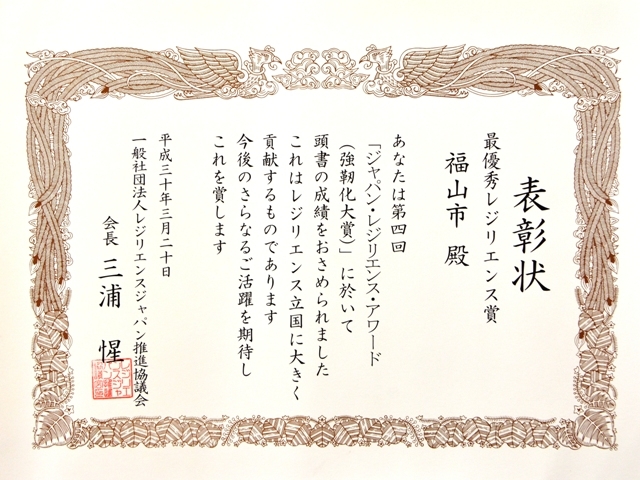 表彰状
最優秀レジリエンス賞
福山市 殿
あなたは第四回
「ジャパン・レジリエンス・アワード
(強靭化大賞)」に於いて
頭書の成績をおさめられました
これはレジリエンス立国に大きく
貢献するものであります
今後のさらなるご活躍を期待し
これを賞します
平成三十年三月二十日
一般社団法人レジリエンスジャパン推進協議会
会長 三浦 惺